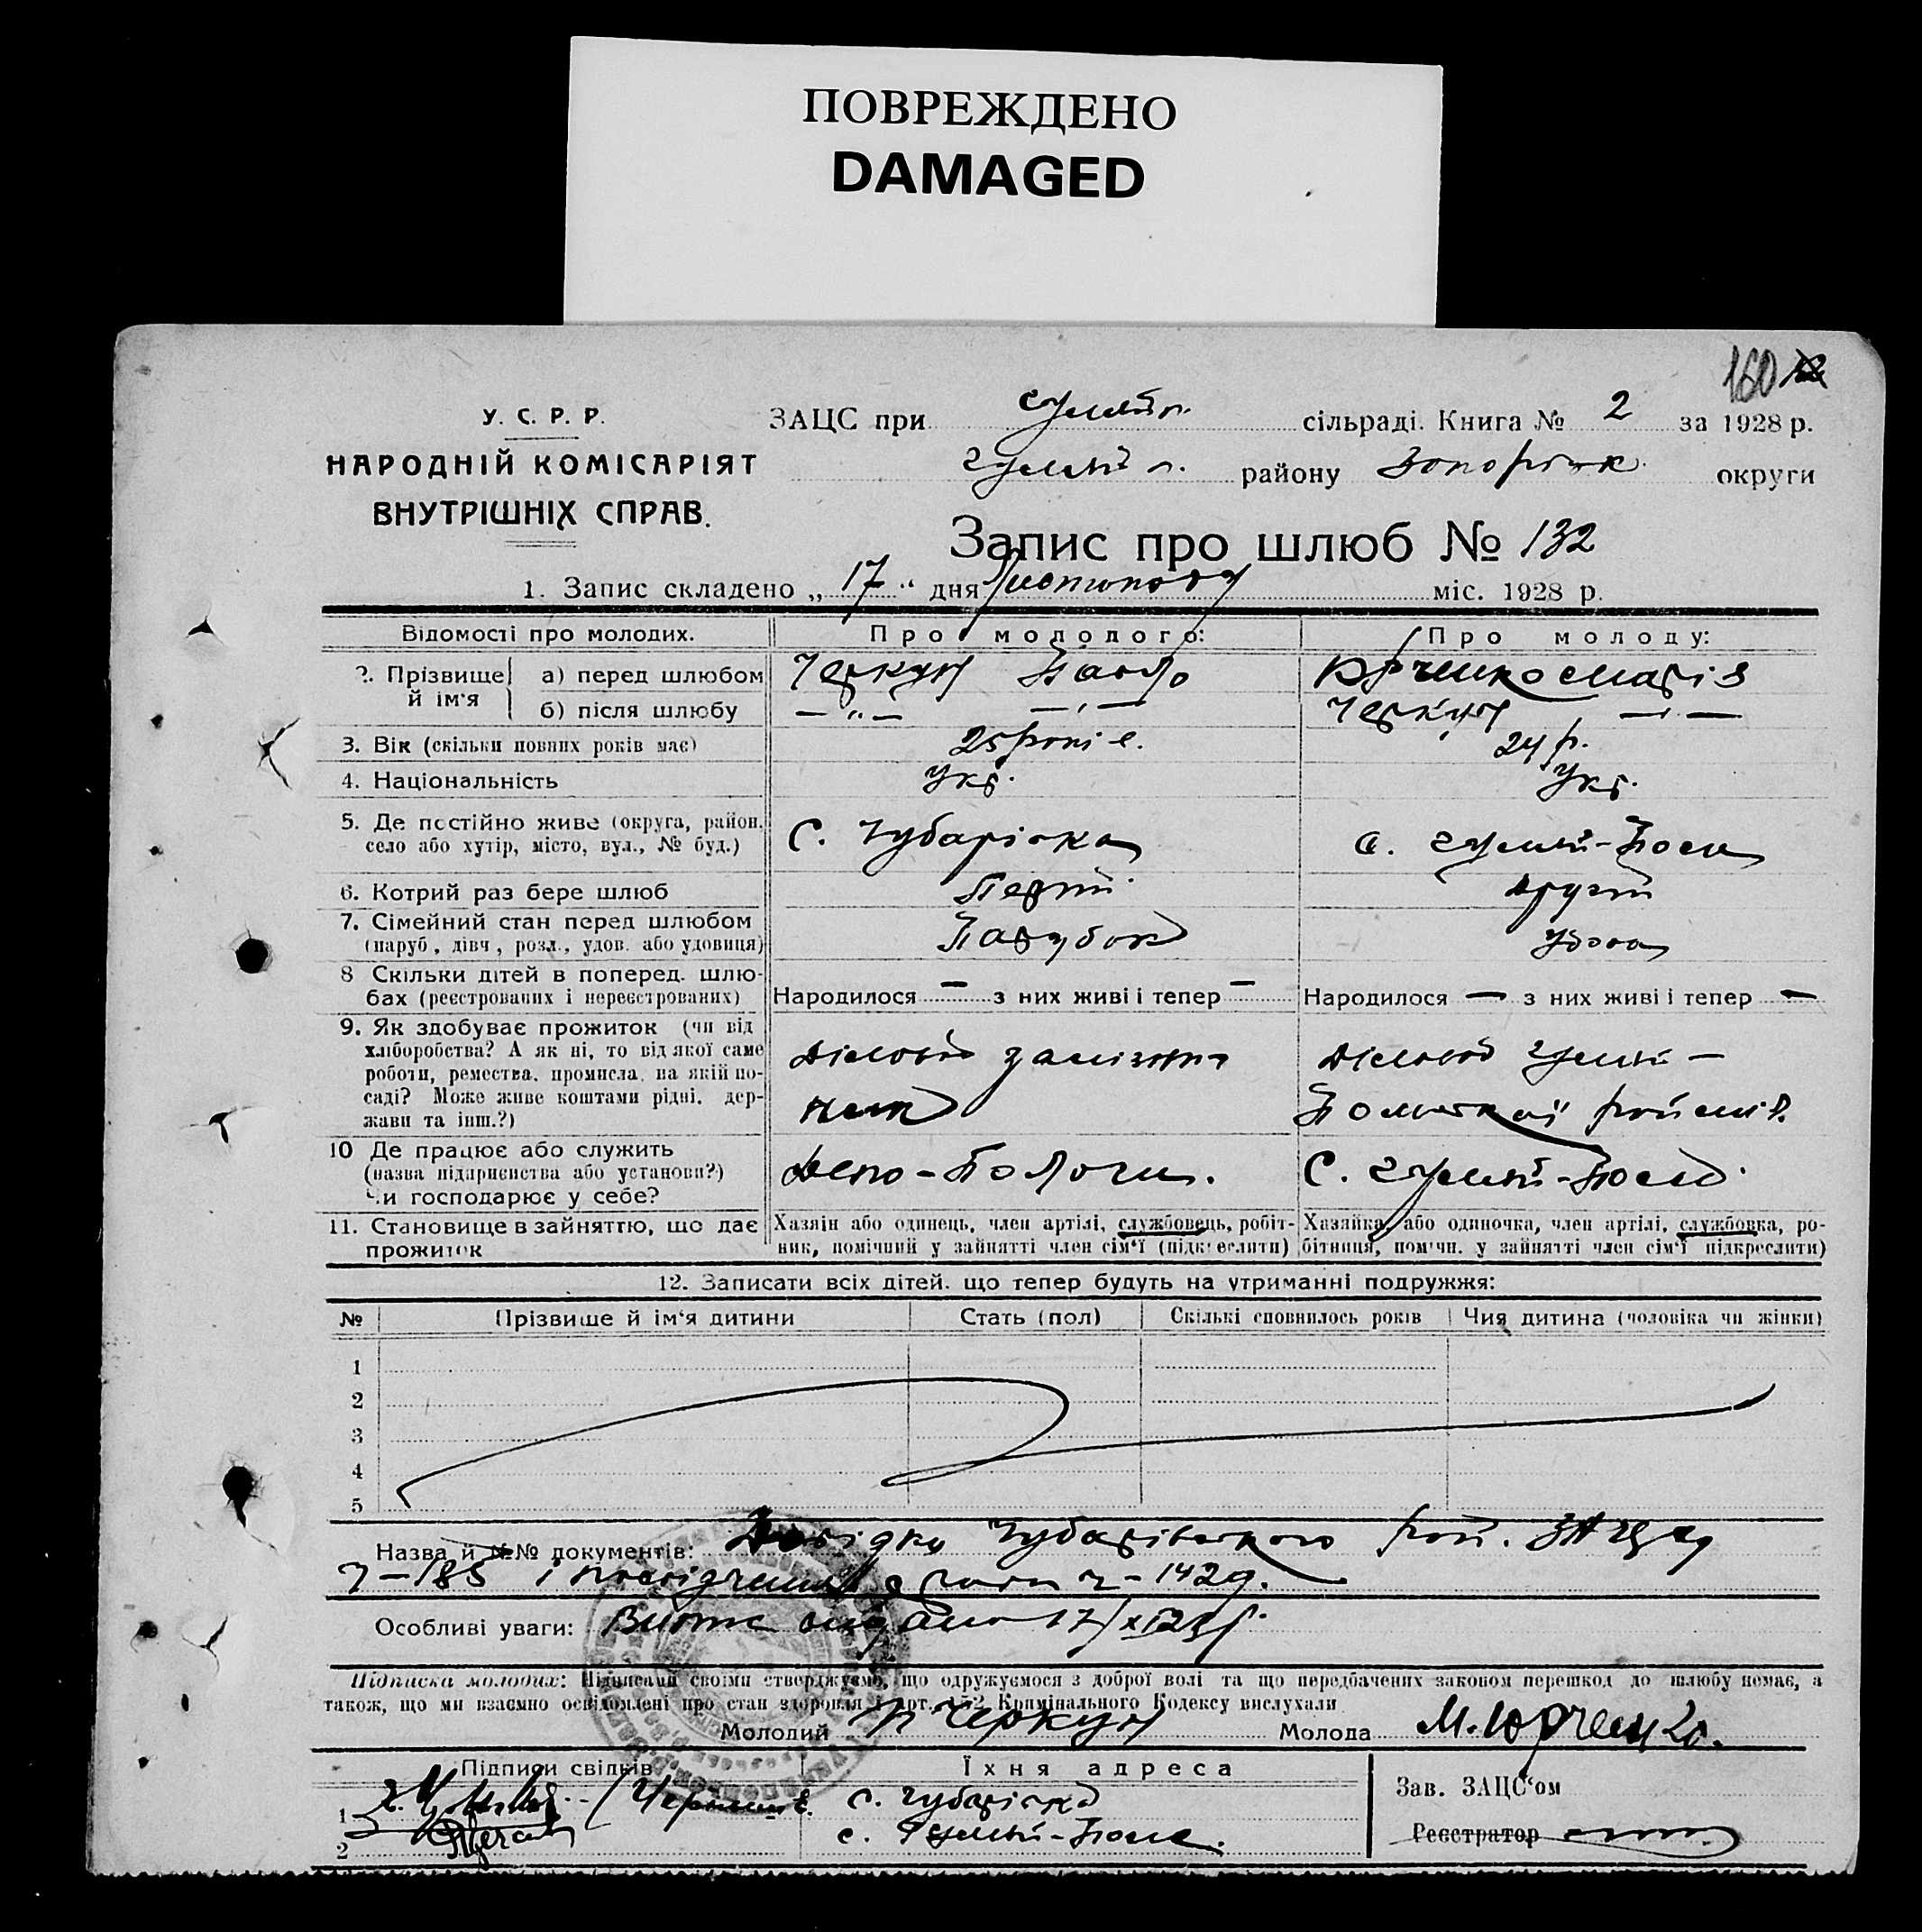 ПОВРЕЖДЕНО
DAMAGED
160
У. С. Р. Р.
НАРОДНІЙ КОМІСАРІЯТ
ВНУТРІШНІХ СПРАВ.
ЗАЦС при сільраді. Книга № 2 за 1928 р.
району округи
Запис про шлюб № 132
1. Запис складено „ 17 “ дня Листопада міс. 1928 р.
Відомості про молодих. Про молодого: Про молоду:
2. Прізвище й ім'я
а) перед шлюбом Черкун Павло Юрченко Марія
б) після шлюбу — „ — — „ — Черкун — „ —
3. Вік (скільки повних років має) 25 років. 24 р.
4. Національність Укр. Укр.
5. Де постійно живе (округа, район,
село або хутір, місто, вул., № буд.) С. Чубарівка с. Гуляй-Поле
6. Котрий раз бере шлюб Перший Другий
7. Сімейний стан перед шлюбом
(паруб, дівч, розл., удов. або удовиця) Парубок Удова
8 Скільки дітей в поперед. шлю-
бах (реєстрованих і нереєстрованих) Народилося — з них живі і тепер — Народилося — з них живі і тепер —
9. Як здобуває прожиток (чи від
хліборобства? А як ні, то від якої саме
роботи, ремества, промисла, на якій по-
саді? Може живе коштами рідні, дер-
жави та інш.?)
10 Де працює або служить
(назва підприємства або установи?)
Чи господарює у себе? Депо-Пологи. С. Гуляй-Поле
11. Становище в зайняттю, що дає
прожиток
Хазяін або одинець, член артілі, службовець, робіт-
ник, помічний у зайнятті член сім'ї (підкреслити)
Хазяйка, або одиночка, член артілі, службовка, ро-
бітниця, помічн. у зайнятті член сім'ї підкреслити)
12. Записати всіх дітей, що тепер будуть на утриманні подружжя:
№ Прізвище й ім'я дитини Стать (пол) Скількі сповнилось років Чия дитина (чоловіка чи жінки)
1
2
3
4
5
Назва й №№ документів: Довідка Чубарівського рай. ЗАЦСу
ч-185 і посвідчення ч-1429.
Особливі уваги: Витяг видано 17/XI 28 р.
Підписка молодих: Підписами своїми стверджуємо, що одружуємося з доброї волі та що передбачених законом перешкод до шлюбу немає, а
також, що ми взаємно освідомлені про стан здоровля і арт. 152 Кримінального Кодексу вислухали
Молодий П Черкун Молода М. Юрченко.
Підписи свідків Їхня адреса
1 с. Чубарівка
2 с. Гуляй-Поле.
Зав. ЗАЦС'ом
Реєстратор